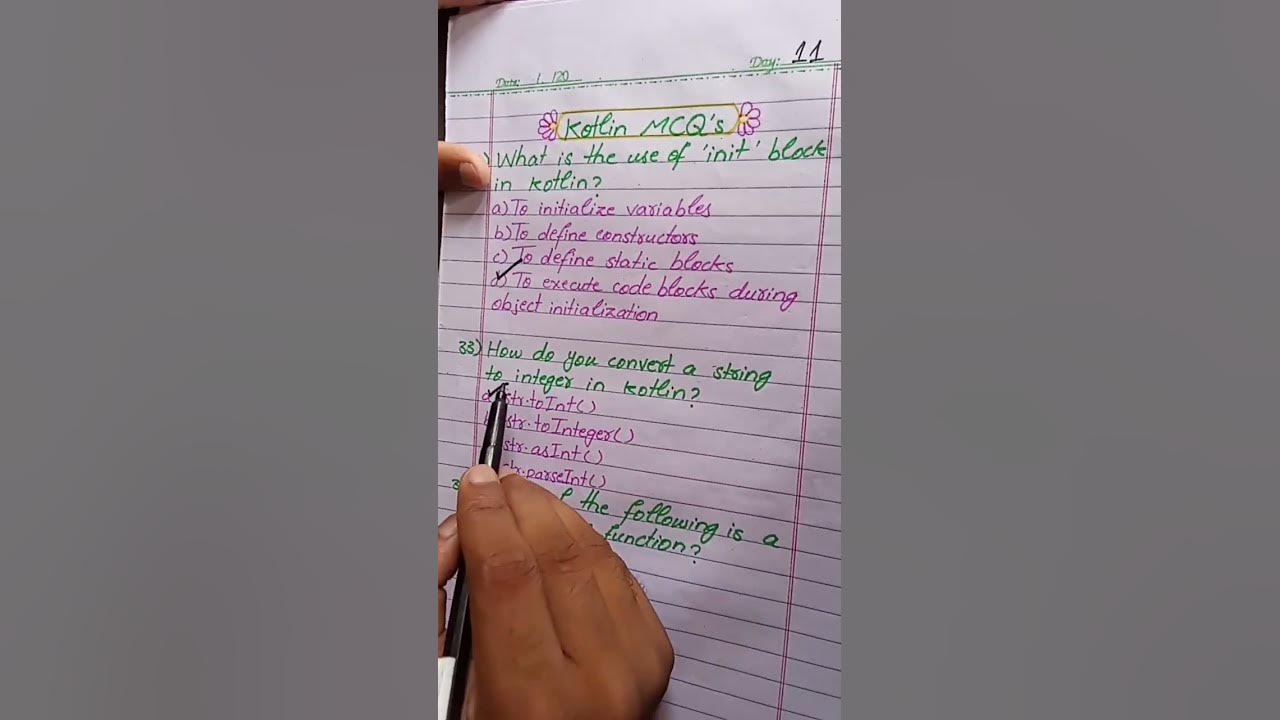 Day: 11
Date: 1. 120
Kotlin MCQ's
) What is the use of 'init' block
in kotlin?
a) To initialize variables
b) To define constructors
c) To define static blocks
d) To execute code blocks during
object initialization
33) How do you convert a string
to integer in kotlin?
str.toInt()
str.toInteger()
str.asInt()
str.parseInt()
of the following is a
function?